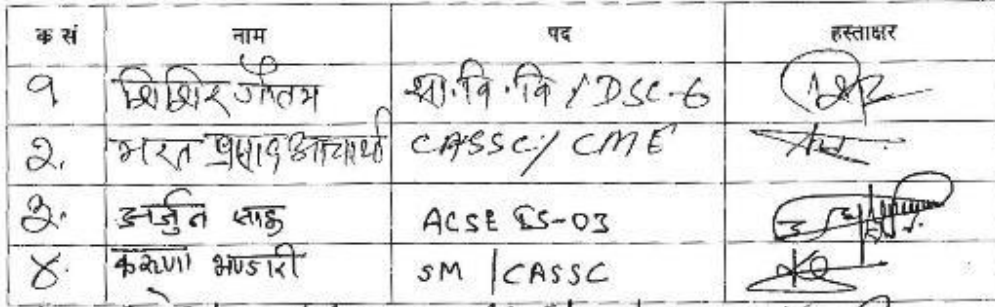 क सं नाम पद हस्ताक्षर
१ शिशिर गौतम भा.वि.वि / DSC-6
२. भरत प्रसाद आचार्य CASSC / CME
३. अर्जुन साह ACSE ES-03
४. करुणा भण्डारी SM / CASSC